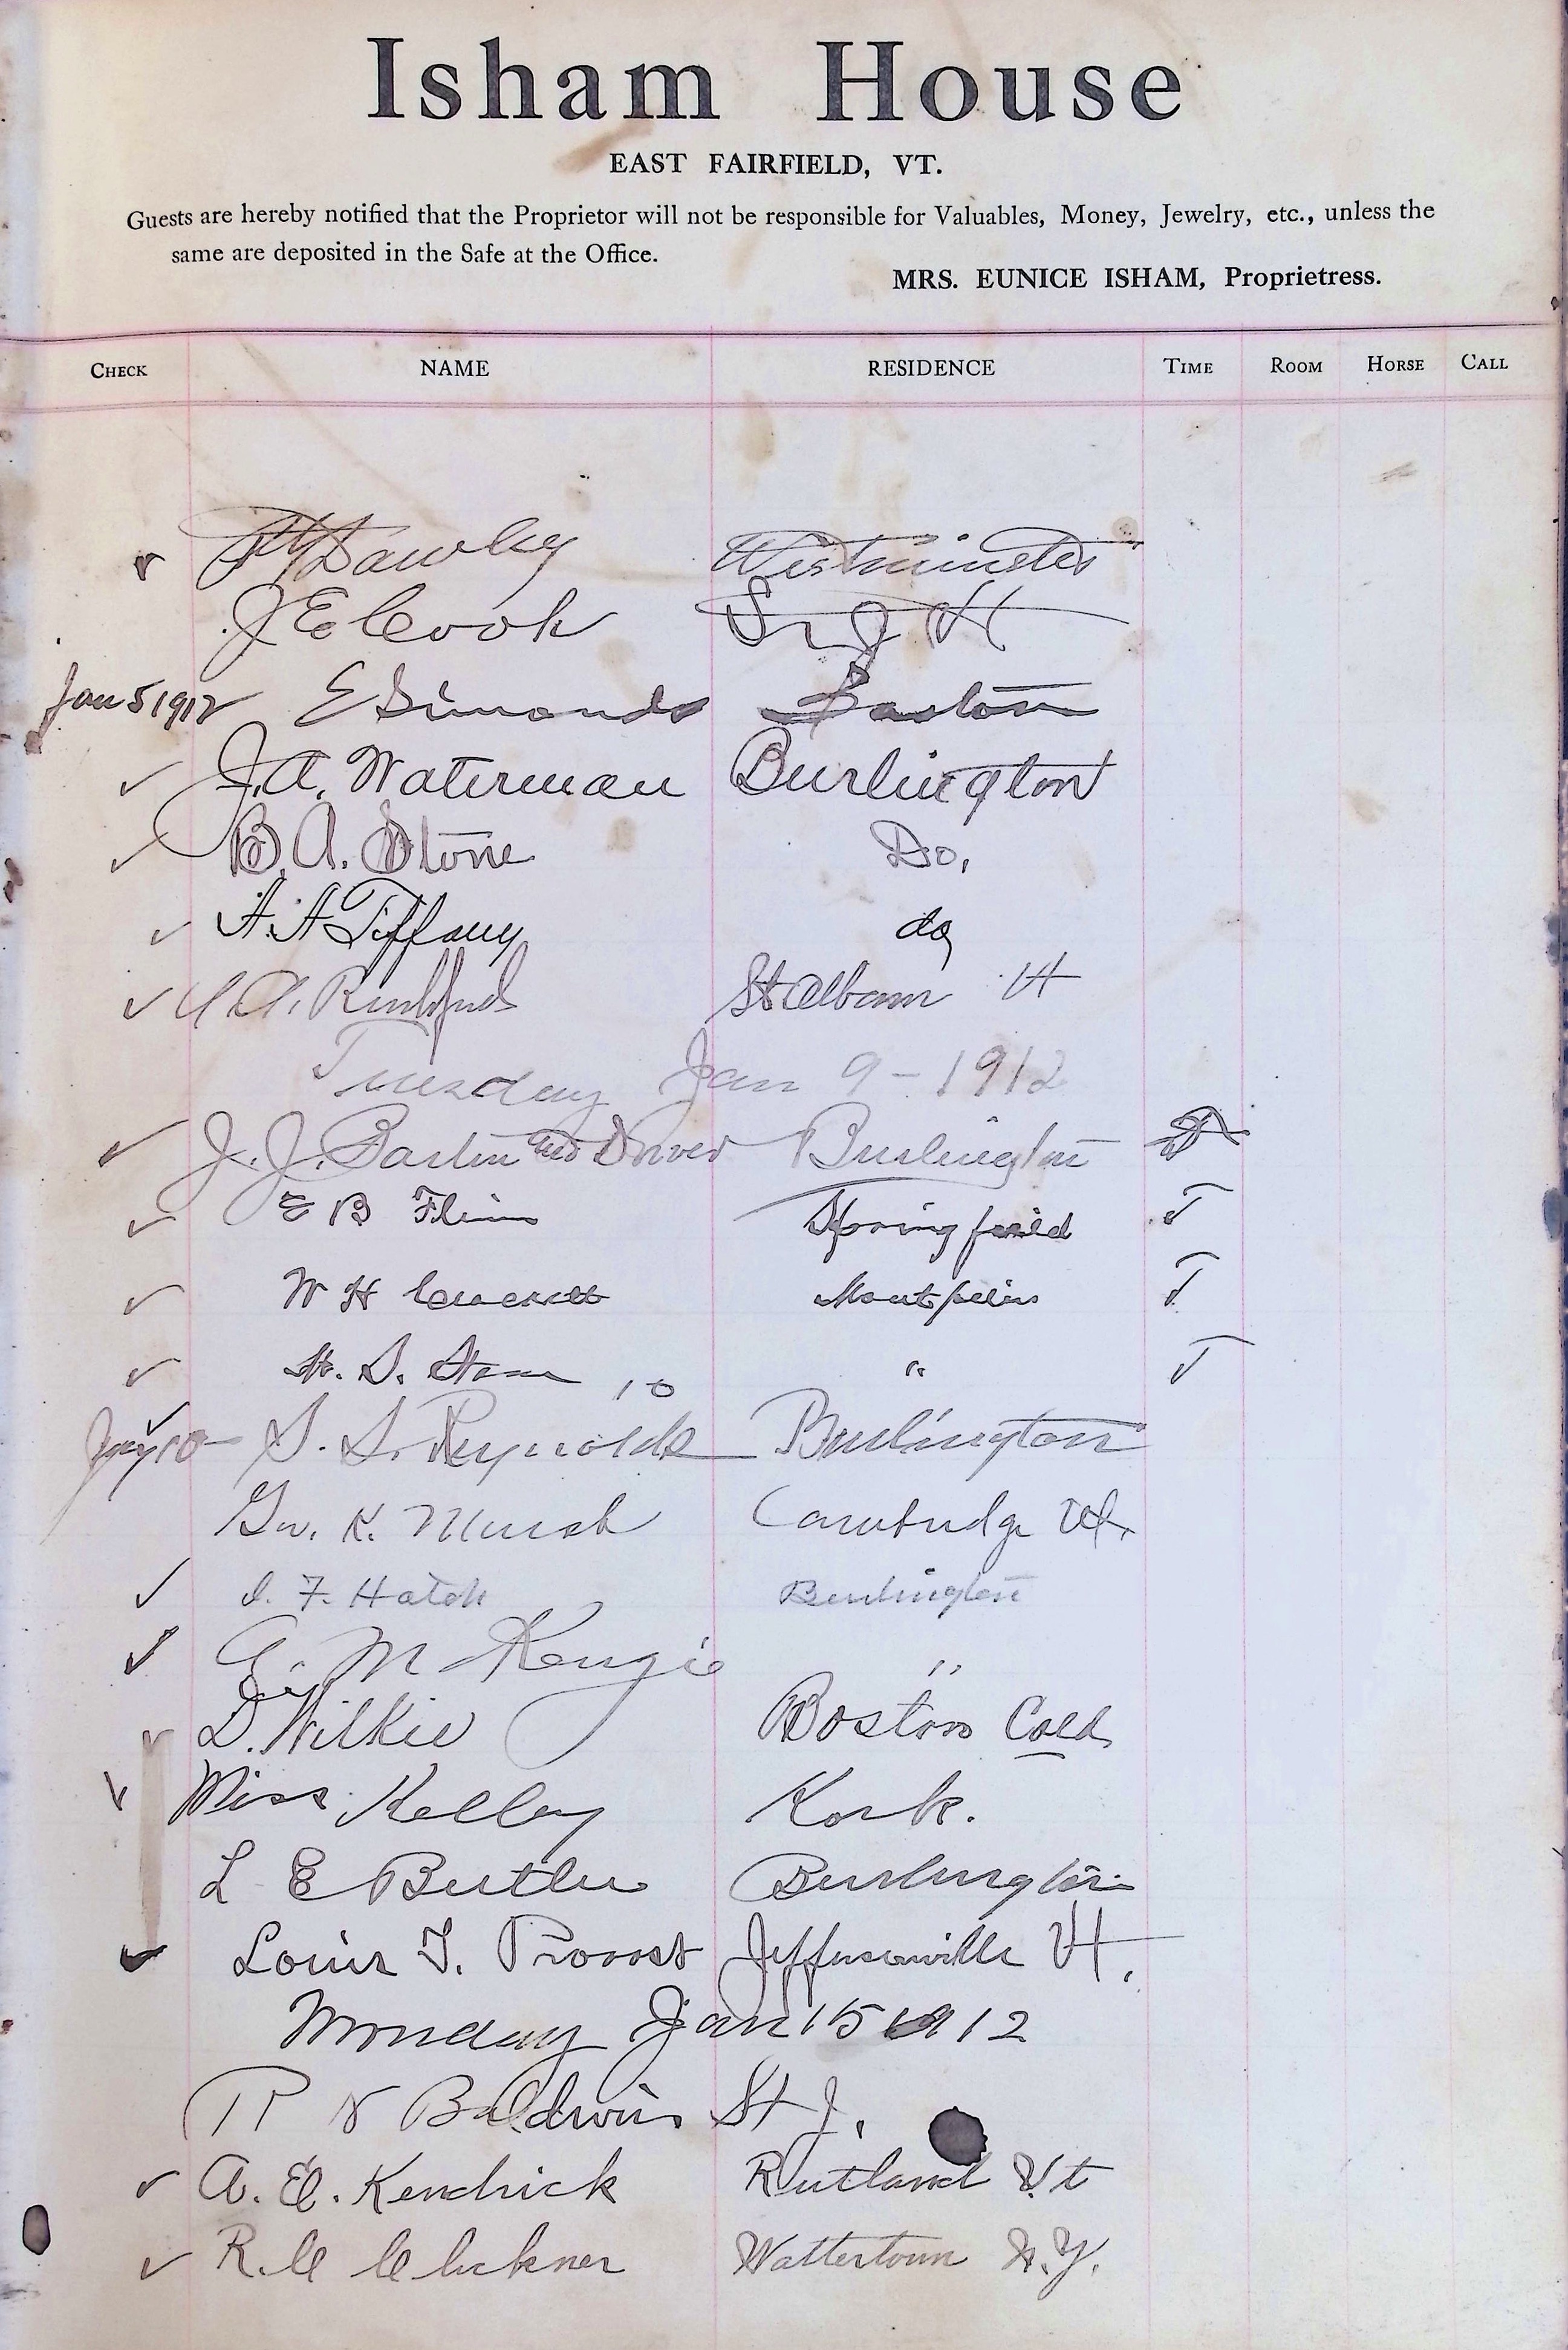 Isham House
EAST FAIRFIELD, VT.
Guests are hereby notified that the Proprietor will not be responsible for Valuables, Money, Jewelry, etc., unless the
same are deposited in the Safe at the Office.
MRS. EUNICE ISHAM, Proprietress.
CHECK NAME RESIDENCE TIME ROOM HORSE CALL
Dawley Westminster
J E Cook St J Vt
Jan 5 1912 E Simonds Boston
J. A. Waterman Burlington
B. A. Stone Do,
A. A Tiffany do
St Albans Vt
Tuesday Jan 9 - 1912
J. J. and Driver Burlington
E B Springfield
W H Montpelier
"
10
10 S. S. Reynolds Burlington
Geo. K. Cambridge Vt.
I. F. Hatch Burlington
McKenzie "
D. Wilkie Boston Cold
Miss Kelley Kork.
L E Butler Burlington
Louis T. Provost Jeffersonville Vt.
Monday Jan 15 1912
Baldwin St J.
A. E. Kendrick Rutland Vt
R. C Cluckner Wattertown N.Y.